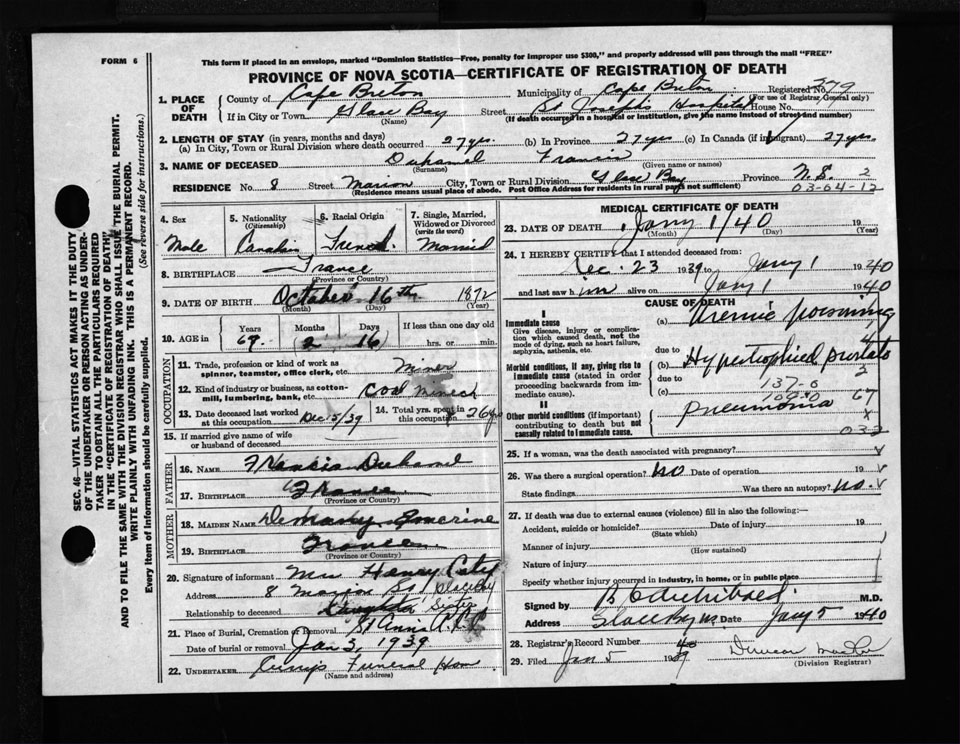 FORM 6
This form if placed in an envelope, marked "Dominion Statistics—Free, penalty for improper use $300," and properly addressed will pass through the mail "FREE"
PROVINCE OF NOVA SCOTIA—CERTIFICATE OF REGISTRATION OF DEATH
1. PLACE OF DEATH
County of Cape Breton Municipality of Cape Breton Registered No. 379
(For use of Registrar General only)
If in City or Town Glace Bay Street St Joseph's Hospital House No.
(Name) (If death occurred in a hospital or institution, give the name instead of street and number)
2. LENGTH OF STAY (in years, months and days)
(a) In City, Town or Rural Division where death occurred 27 yrs. (b) In Province 27 yrs (c) In Canada (if immigrant) 27 yrs
3. NAME OF DECEASED Duhamel Francis
(Surname) (Given name or names)
RESIDENCE No. 8 Street Marion City, Town or Rural Division Glace Bay Province N.S. 2
(Residence means usual place of abode. Post Office Address for residents in rural parts not sufficient) 03-04-12
4. Sex
Male
5. Nationality
(Citizenship)
Canadian
6. Racial Origin
French
7. Single, Married, Widowed or Divorced
(write the word)
Married
8. BIRTHPLACE France
(Province or Country)
9. DATE OF BIRTH October 16th 1872
(Month) (Day) (Year)
10. AGE in Years Months Days If less than one day old
69 2 16 hrs. or min.
OCCUPATION
11. Trade, profession or kind of work as
spinner, teamster, office clerk, etc. Miner
12. Kind of industry or business, as cotton-
mill, lumbering, bank, etc. Coal
13. Date deceased last worked
at this occupation Dec 5/39
14. Total yrs. spent in
this occupation 26 yrs
15. If married give name of wife
or husband of deceased
FATHER
16. NAME Francis Duhamel
17. BIRTHPLACE France
(Province or Country)
MOTHER
18. MAIDEN NAME
19. BIRTHPLACE France
(Province or Country)
20. Signature of informant Mrs Harvey
Address 8 Marion
Relationship to deceased Daughter Sister
21. Place of Burial, Cremation or Removal St Ann
Date of burial or removal Jan 3, 1939
22. UNDERTAKER Funeral Home
(Name and address)
MEDICAL CERTIFICATE OF DEATH
23. DATE OF DEATH Jany 1/40 19
(Month) (Day) (Year)
24. I HEREBY CERTIFY that I attended deceased from:
Dec. 23 1939 to Jany 1 1940
and last saw him alive on Jany 1 1940
CAUSE OF DEATH
I
Immediate cause (a) Uremic poisoning
Give disease, injury or complica-
tion which caused death, not the
mode of dying, such as heart failure,
asphyxia, asthenia, etc.
due to
Morbid conditions, if any, giving rise to
immediate cause (stated in order
proceeding backwards from im-
mediate cause).
(b) Hypertrophied prostate
due to 137-0
(c)
II
Other morbid conditions (if important)
contributing to death but not
causally related to immediate cause.
Pneumonia
25. If a woman, was the death associated with pregnancy?
26. Was there a surgical operation? no Date of operation 19
State findings Was there an autopsy? no.
27. If death was due to external causes (violence) fill in also the following:—
Accident, suicide or homicide? Date of injury 19
(State which)
Manner of injury
(How sustained)
Nature of injury
Specify whether injury occurred in industry, in home, or in public place
Signed by Archibald M.D.
Address Glace Bay NS Date Jany 5 1940
28. Registrar's Record Number
29. Filed Jan 5 1939 Duncan
(Division Registrar)
SEC. 46—VITAL STATISTICS ACT MAKES IT THE DUTY
OF THE UNDERTAKER OR PERSON ACTING AS UNDER-
TAKER TO OBTAIN ALL THE PARTICULARS REQUIRED
IN THE "CERTIFICATE OF REGISTRATION OF DEATH"
AND TO FILE THE SAME WITH THE DIVISION REGISTRAR WHO SHALL ISSUE THE BURIAL PERMIT.
WRITE PLAINLY WITH UNFADING INK. THIS IS A PERMANENT RECORD.
Every item of information should be carefully supplied. (See reverse side for instructions.)